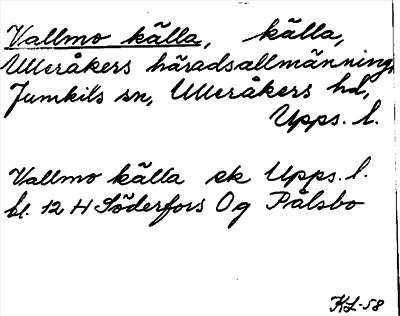 Vallmo källa, källa,
Ulleråkers häradsallmänning,
Jumkils sn, Ulleråkers hd,
Upps. l.
Vallmo källa ek Upps. l.
bl. 12 H Söderfors Og Pålsbo
KL-58